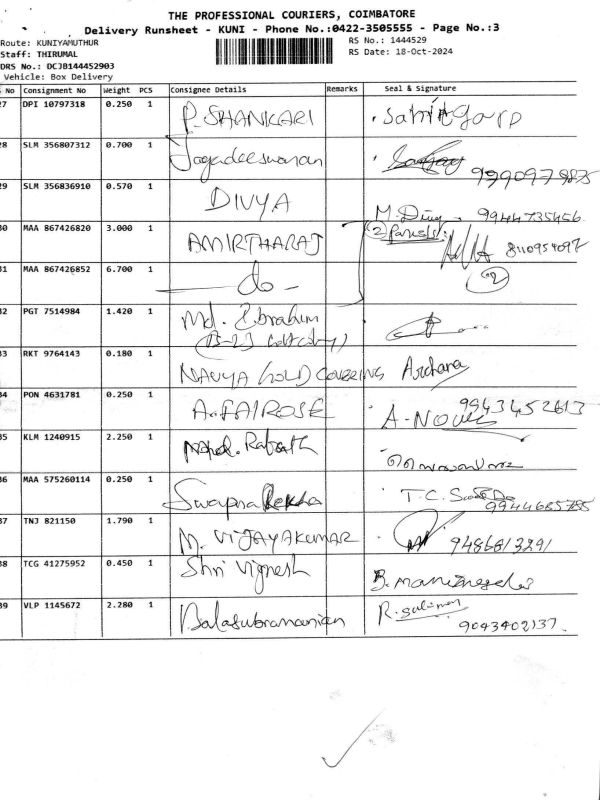 THE PROFESSIONAL COURIERS, COIMBATORE
Delivery Runsheet - KUNI - Phone No.:0422-3505555 - Page No.:3
Route: KUNIYAMUTHUR
RS No.: 1444529
Staff: THIRUMAL
RS Date: 18-Oct-2024
DRS No.: DCJB144452903
Vehicle: Box Delivery
No Consignment No Weight PCS Consignee Details Remarks Seal & Signature
27 DPI 10797318 0.250 1 P. SHANKARI
28 SLM 356807312 0.700 1 Jagadeeswaran
29 SLM 356836910 0.570 1 DIVYA M. Divy 9944735456
30 MAA 867426820 3.000 1 AMIRTHARAJ (2 Parcels) 8110954097
31 MAA 867426852 6.700 1 - do - 2
32 PGT 7514984 1.420 1 Md. Ebrahim
33 RKT 9764143 0.180 1 NAVYA GOLD COVERING Archana
34 PON 4631781 0.250 1 A. FAIROSE 9943452613
35 KLM 1240915 2.250 1 Mohd.
36 MAA 575260114 0.250 1 Swapna Rekha T.C. 9944685785
37 TNJ 821150 1.790 1 M. VIJAYAKUMAR 9486813291
38 TCG 41275952 0.450 1 Shri Vignesh
39 VLP 1145672 2.280 1 Balasubramanian 9043402137